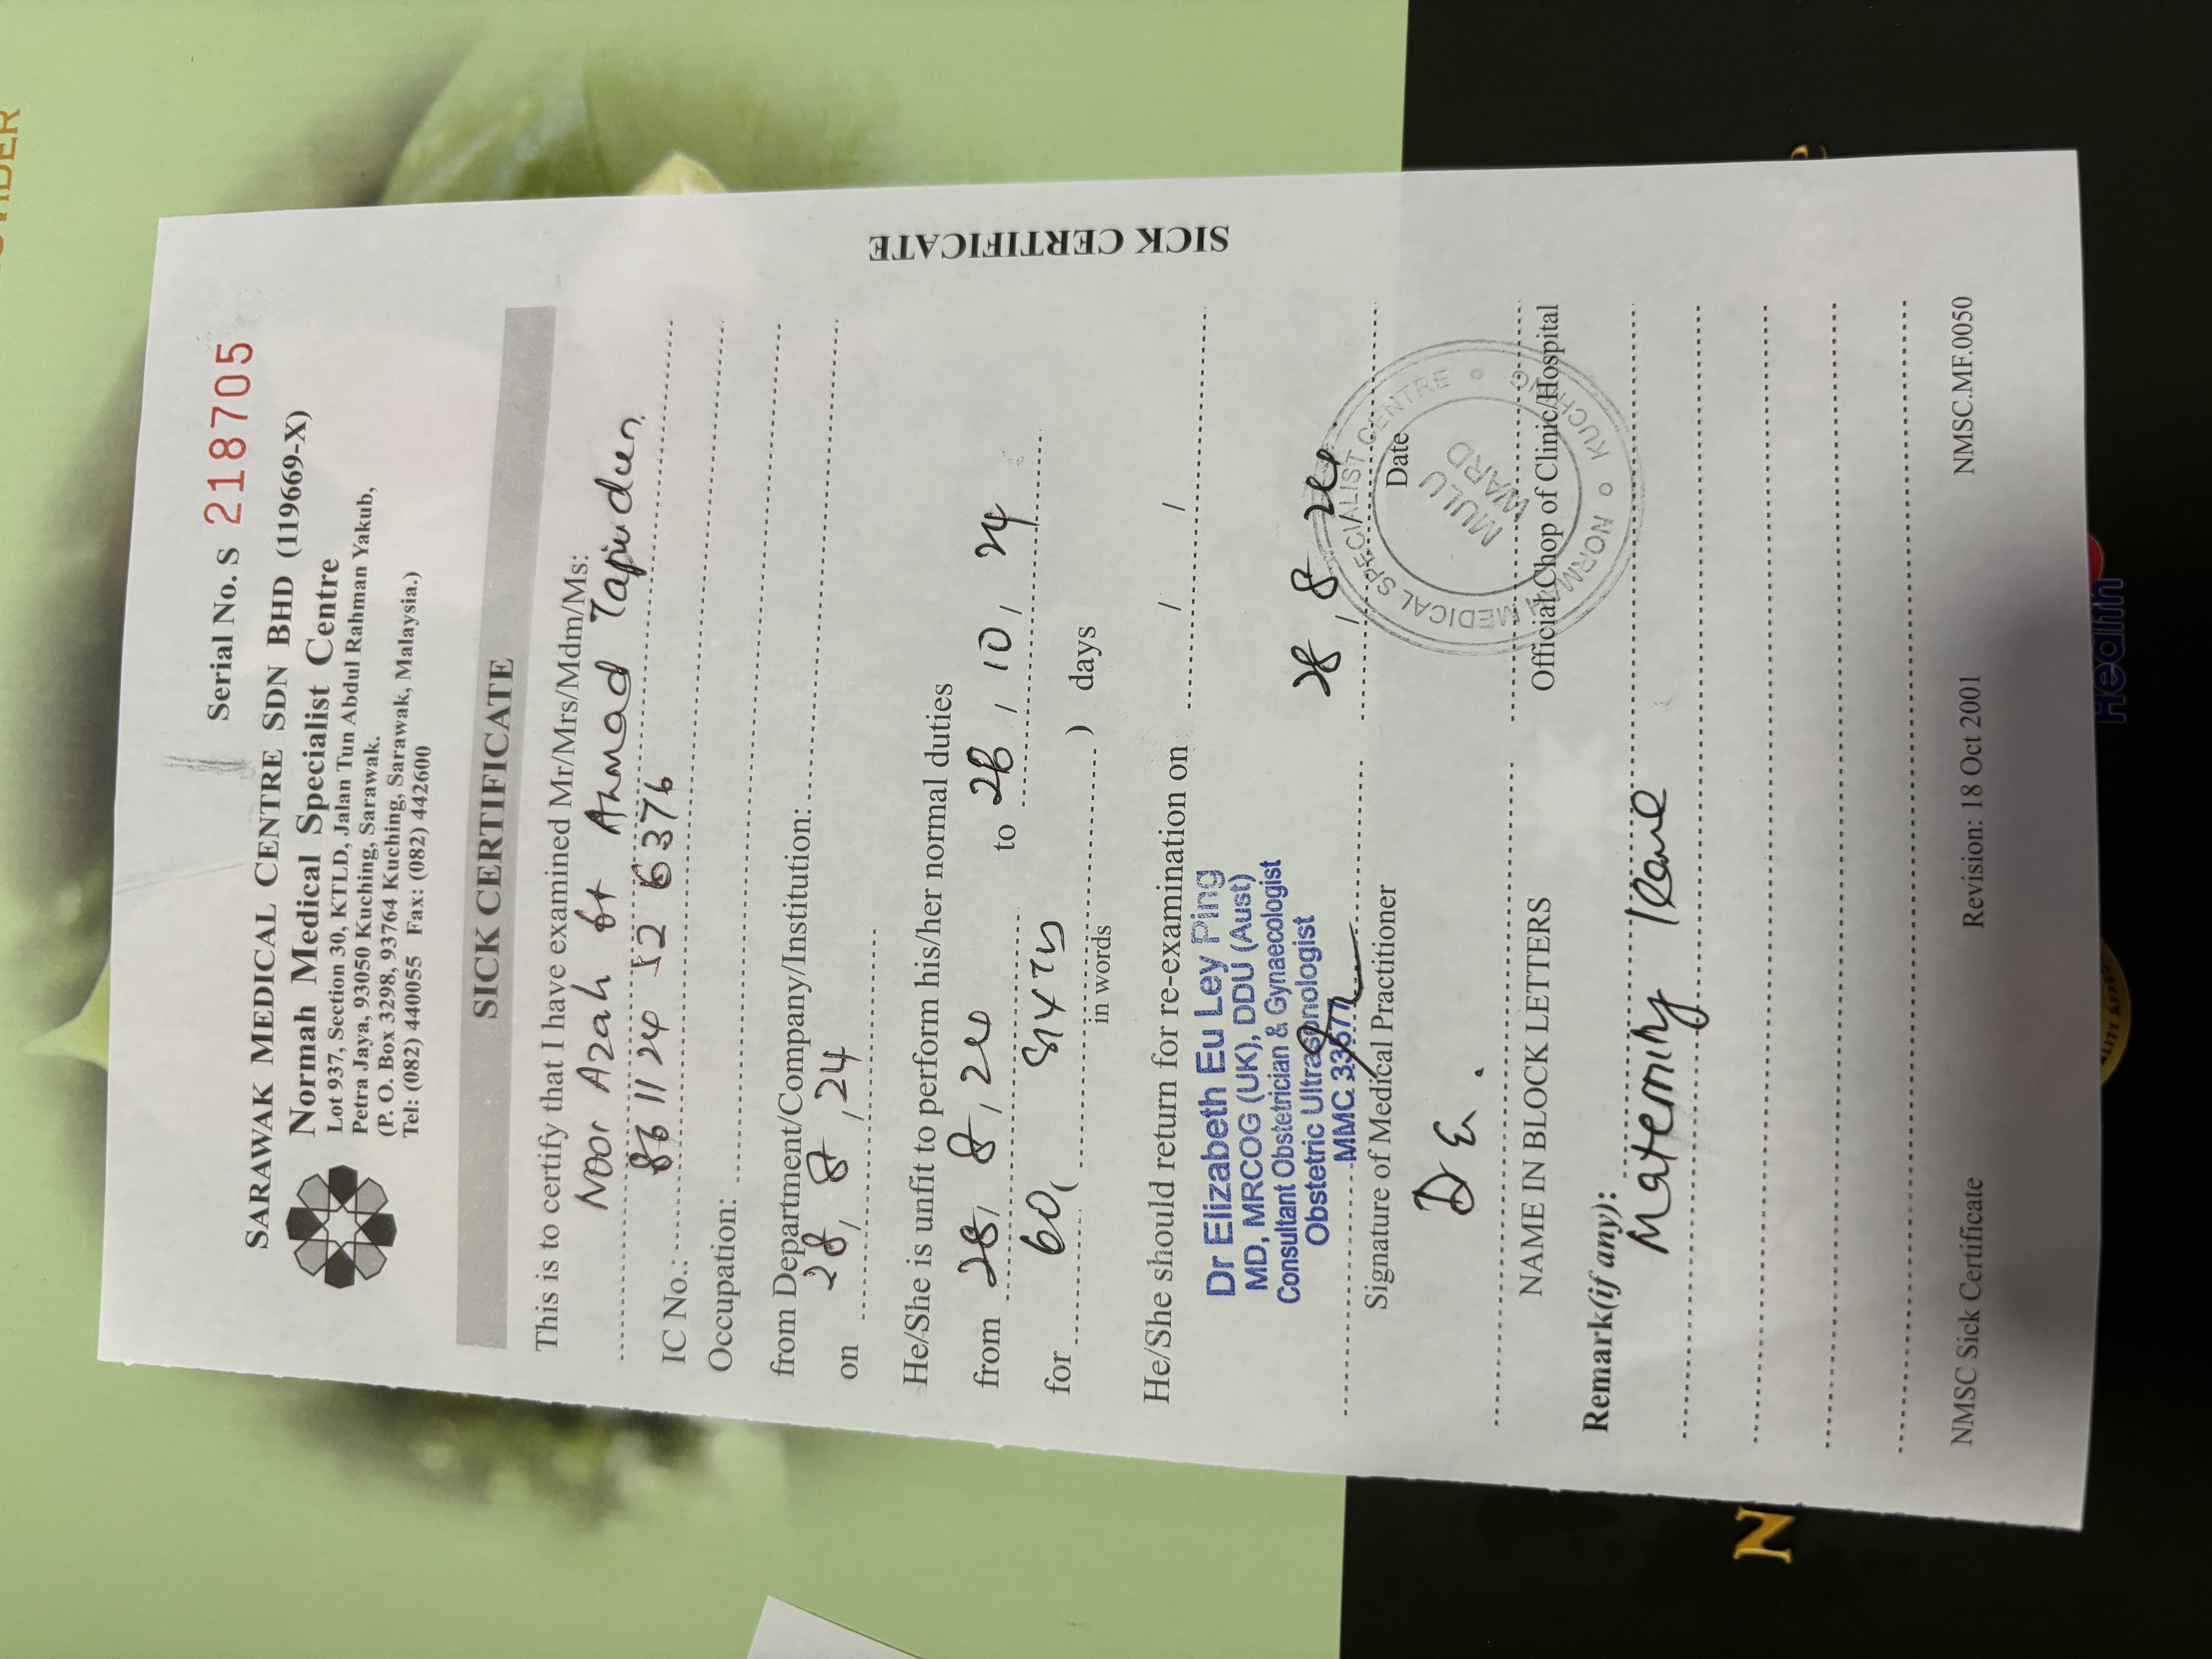 OVIDER
Serial No. S 218705
SARAWAK MEDICAL CENTRE SDN BHD (119669-X)
Normah Medical Specialist Centre
Lot 937, Section 30, KTLD, Jalan Tun Abdul Rahman Yakub,
Petra Jaya, 93050 Kuching, Sarawak.
(P. O. Box 3298, 93764 Kuching, Sarawak, Malaysia.)
Tel: (082) 440055 Fax: (082) 442600
SICK CERTIFICATE
This is to certify that I have examined Mr/Mrs/Mdm/Ms:
Noor Azah bt Ahmad
IC No.: 861124 52 6376
Occupation:
from Department/Company/Institution:
on 28, 8, 24
He/She is unfit to perform his/her normal duties
from 28, 8, 24 to 26, 10, 24
for 60 ( SIXTY ) days
in words
He/She should return for re-examination on / /
SICK CERTIFICATE
Dr Elizabeth Eu Ley Ping
MD, MRCOG (UK), DDU (Aust)
Consultant Obstetrician & Gynaecologist
Obstetric Ultrasonologist
MMC 33577
28, 8, 24.
Signature of Medical Practitioner
Date
NORMAH MEDICAL SPECIALIST CENTRE
KUCHING
MULU
WARD
NAME IN BLOCK LETTERS
Official Chop of Clinic/Hospital
Remark(if any):
Maternity leave
NMSC Sick Certificate Revision: 18 Oct 2001 NMSC.MF.0050
N
e
Health